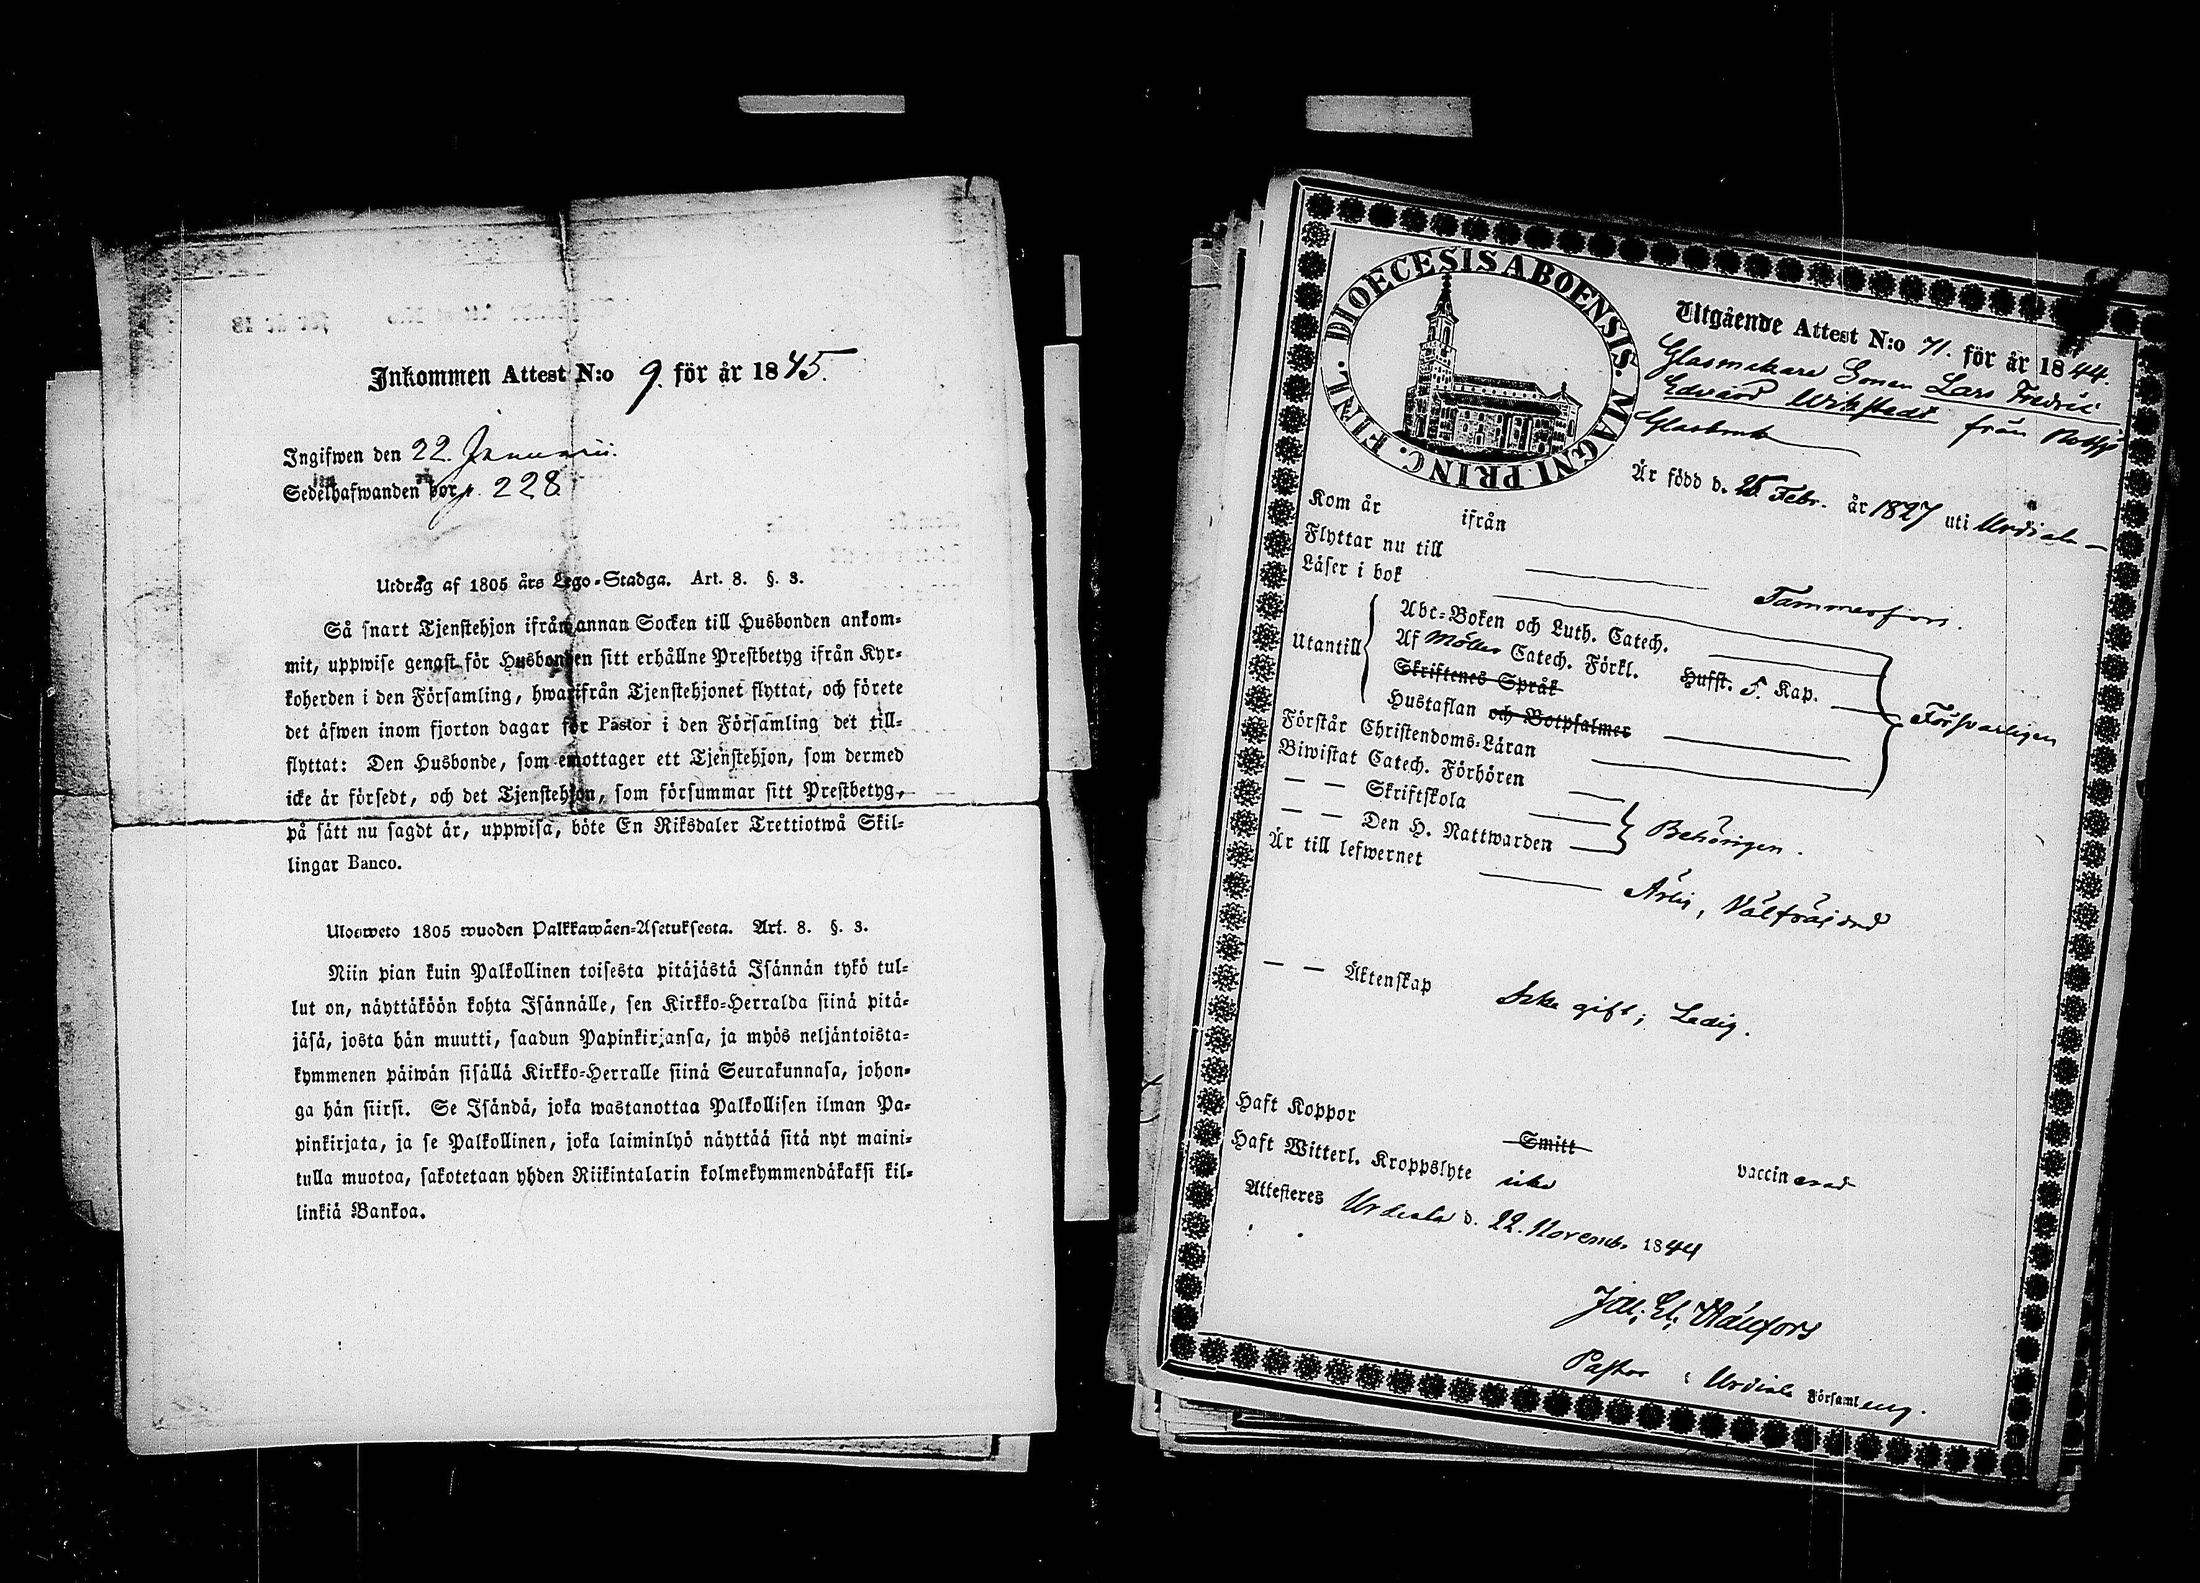 Inkommen Attest N:o 9. för år 1845.
Ingifwen den 22. Januarii.
Sedelhafwanden bor p. 228
Utdrag af 1805 års Lego-Stadga. Art. 8. §. 3.
Så snart Tjenstehjon ifrån annan Socken till Husbonden ankom-
mit, uppwise genast för Husbonden sitt erhållne Prestbetyg ifrån Kyr-
koherden i den Församling, hwarifrån Tjenstehjonet flyttat, och förete
det äfwen inom fjorton dagar för Pastor i den Församling det till-
flyttat: Den Husbonde, som emottager ett Tjenstehjon, som dermed
icke är försedt, och det Tjenstehjon, som försummar sitt Prestbetyg,
på sätt nu sagdt är, uppwisa, böte En Riksdaler Trettiotwå Skil-
lingar Banco.
Ulosweto 1805 wuoden Palkkawäen-Asetuksesta. Art. 8. §. 3.
Niin pian kuin Palkollinen toisesta pitäjästä Isännän tykö tul-
lut on, näyttäköön kohta Isännälle, sen Kirkko-Herralda siinä pitä-
jäsä, josta hän muutti, saadun Papinkirjansa, ja myös neljäntoista-
kymmenen päiwän sisällä Kirkko-Herralle siinä Seurakunnasa, johon-
ga hän siirsi. Se Isändä, joka wastanottaa Palkollisen ilman Pa-
pinkirjata, ja se Palkollinen, joka laiminlyö näyttää sitä nyt maini-
tulla muotoa, sakotetaan yhden Riikintalarin kolmekymmendäkaksi kil-
linkiä Bankoa.
DIOECESIS ABOENSIS. MAGNI PRINC. FINL.
Utgående Attest N:o 71. för år 1844.
Glasmakare Sonen Lars Fredric
Edvard Wikstedt från
Glasbruk
Är född d. 25. Febr. år 1827 uti Urdiala
Kom år ifrån
Flyttar nu till Tammerfors.
Läser i bok
Utantill
Abc-Boken och Luth. Catech.
Af Möllers Catech. Förkl. Hufst. 5. Kap.
Skriftenes Språk
Hustaflan och Botpsalmer
Försvarligen
Förstår Christendoms-Läran
Biwistat Catech. Förhören
— — Skriftskola
— — Den H. Nattwarden
Behörigen.
Är till lefwernet Ärlig, Välfräjdad
— — Äktenskap Icke gift; Ledig.
Haft Koppor Smitt vaccinerad
Haft Witterl. Kroppslyte icke
Attesteres Urdiala d. 22. Novemb. 1844
Pastor i Urdiala Församling.